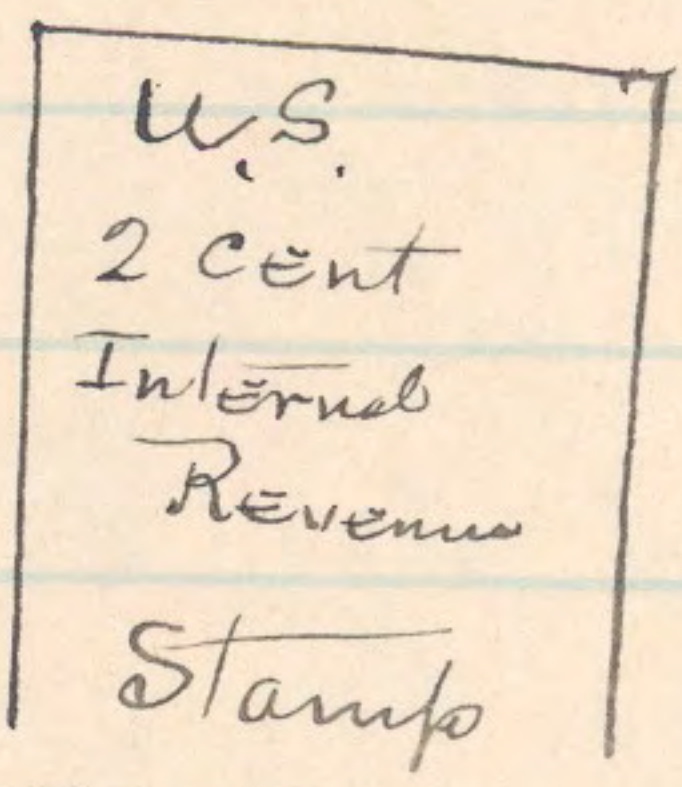 U.S.
2 Cent
Internal
Revenue
Stamp